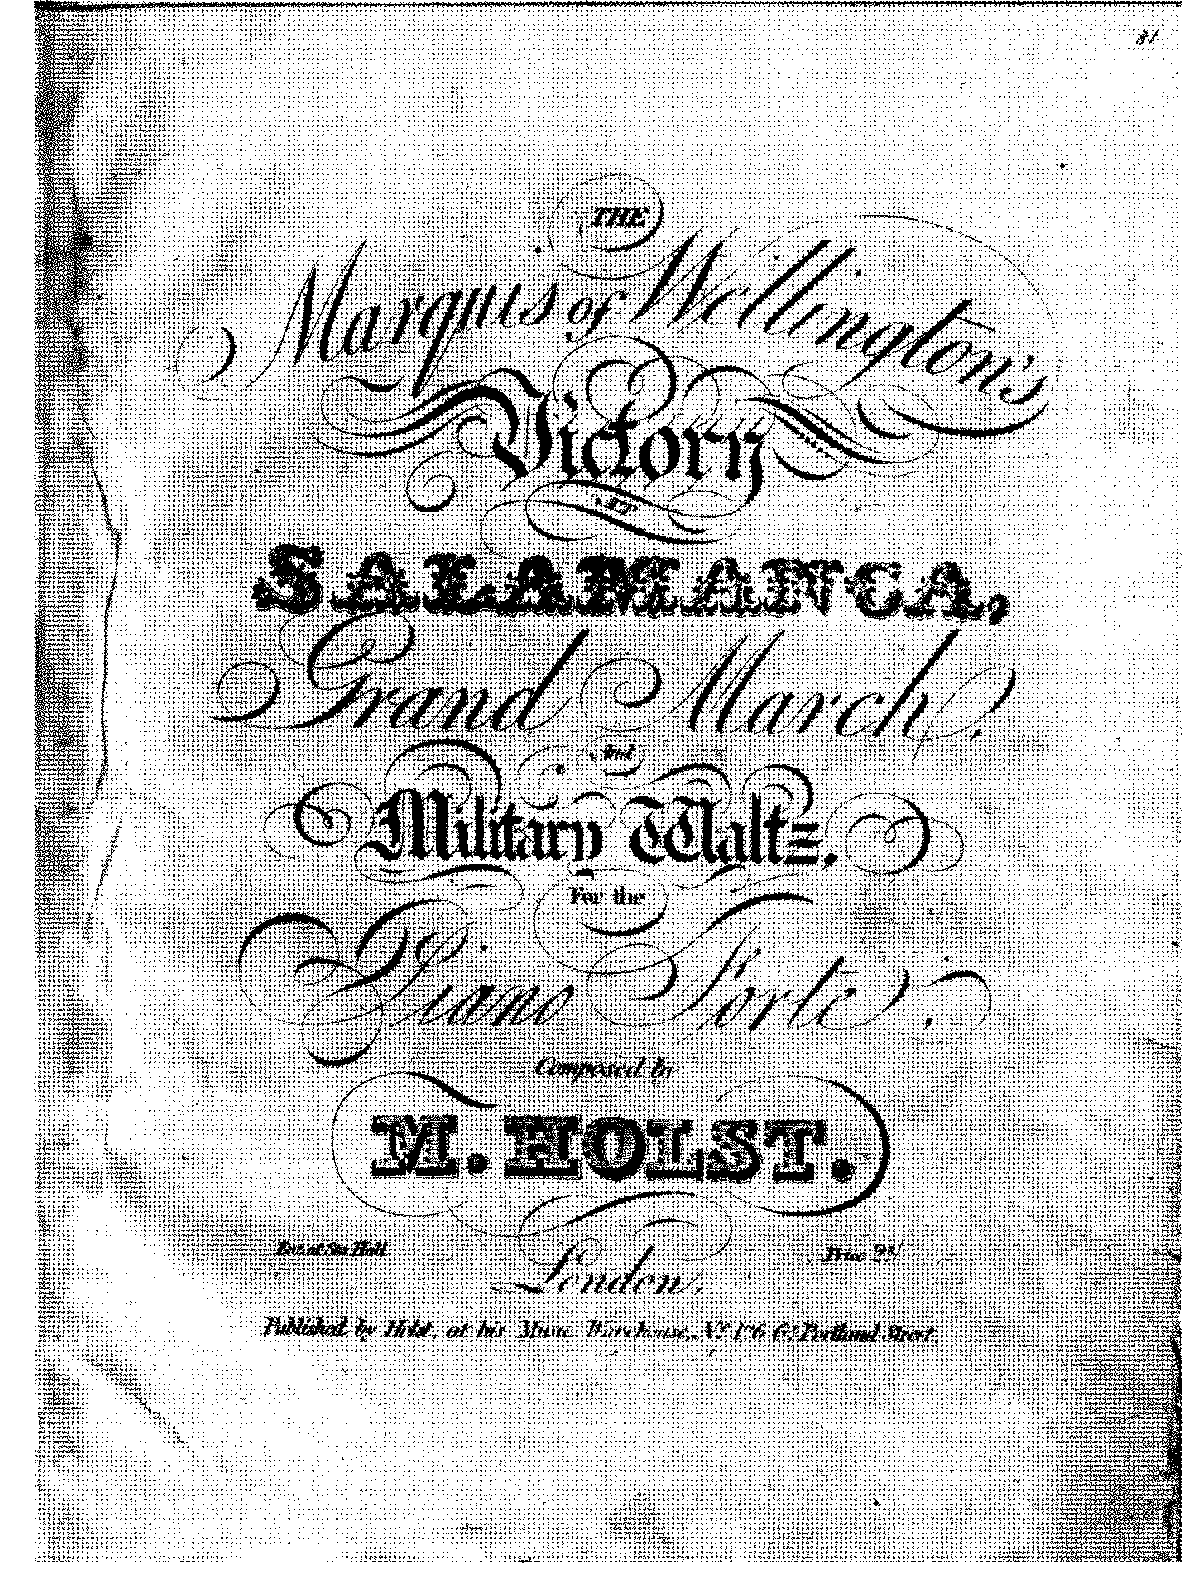 81
THE
Marquis of Wellington's
Victory
AT
SALAMANCA,
Grand March,
And
Military Waltz.
For the
Piano Forte.
Composed by
M. HOLST.
Ent. at Sta. Hall
Price
London,
Published by Holst, at his Music Warehouse, Portland Street